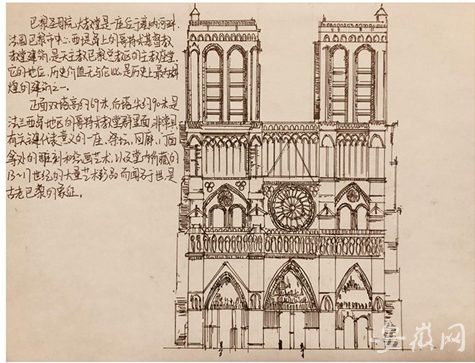 巴黎圣母院大教堂是一座位于塞纳河畔、
法国巴黎市中心、西堤岛上的哥特式基督教
教堂建筑,是天主教巴黎总教区的主教座堂。
它的地位、历史价值无与伦比,是历史上最为辉
煌的建筑之一。
正面双塔
约建造于
法兰西岛地区的哥特式教堂群里面,非常具
有关键代表意义的一座。祭坛、回廊、门窗
等处的雕刻和绘画艺术,以及堂内所藏的
13~17世纪的大量艺术珍品而闻名于世,是
古老巴黎的象征。
安徽网